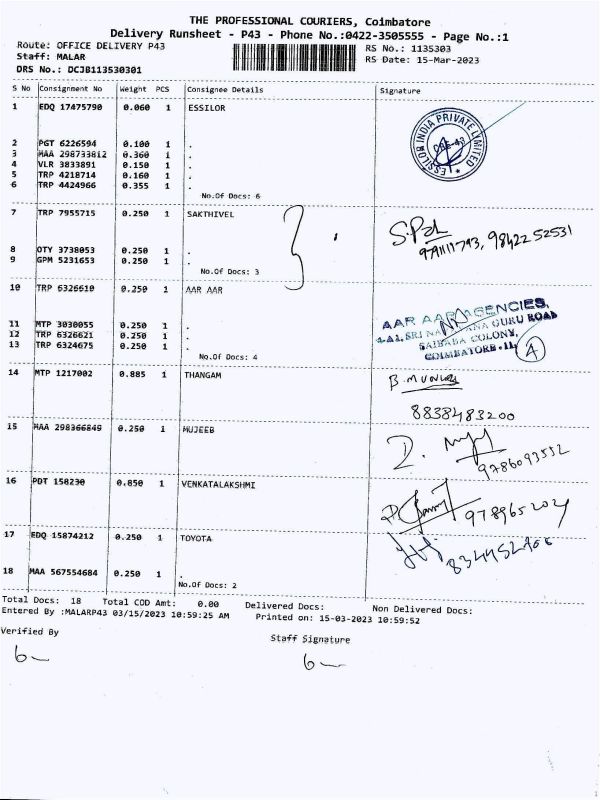 THE PROFESSIONAL COURIERS, Coimbatore
Delivery Runsheet - P43 - Phone No.:0422-3505555 - Page No.:1
Route: OFFICE DELIVERY P43 RS No.: 1135303
Staff: MALAR RS Date: 15-Mar-2023
DRS No.: DCJB113530301
S No Consignment No Weight PCS Consignee Details Signature
1 EDQ 17475790 0.060 1 ESSILOR
ESSILOR INDIA PRIVATE LIMITED
2 PGT 6226594 0.100 1 .
3 MAA 298733812 0.360 1 .
4 VLR 3833891 0.150 1 .
5 TRP 4218714 0.160 1 .
6 TRP 4424966 0.355 1 .
No.Of Docs: 6
7 TRP 7955715 0.250 1 SAKTHIVEL
9842252531
8 OTY 3738053 0.250 1 .
9 GPM 5231653 0.250 1 .
No.Of Docs: 3
10 TRP 6326610 0.250 1 AAR AAR
AAR AAR AGENCIES,
GURU ROAD
SAIBABA COLONY,
COIMBATORE-11.
4
11 MTP 3030055 0.250 1 .
12 TRP 6326621 0.250 1 .
13 TRP 6324675 0.250 1 .
No.Of Docs: 4
14 MTP 1217002 0.885 1 THANGAM
8838483200
15 MAA 298366849 0.250 1 MUJEEB
9786093552
16 PDT 158230 0.850 1 VENKATALAKSHMI
17 EDQ 15874212 0.250 1 TOYOTA
18 MAA 567554684 0.250 1 .
No.Of Docs: 2
Total Docs: 18 Total COD Amt: 0.00 Delivered Docs: Non Delivered Docs:
Entered By :MALARP43 03/15/2023 10:59:25 AM Printed on: 15-03-2023 10:59:52
Verified By Staff Signature